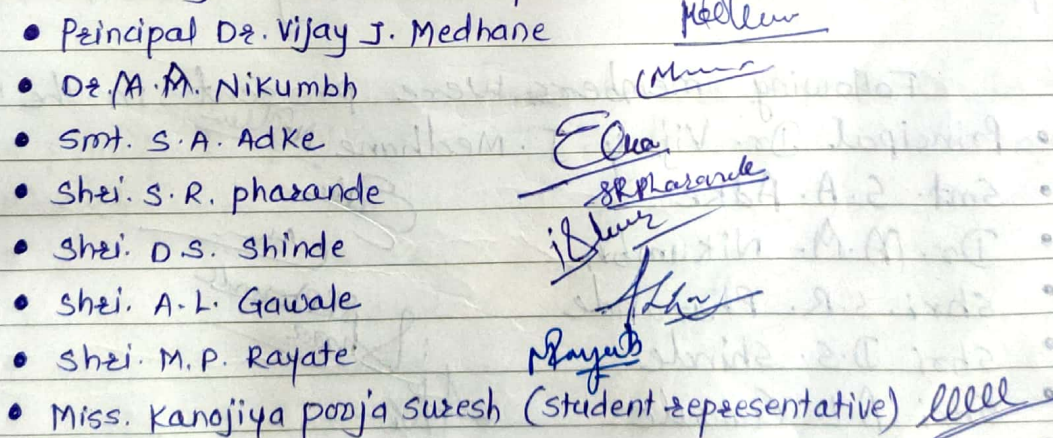 • Principal Dr. Vijay J. Medhane
• Dr. M. A. Nikumbh
• Smt. S. A. Adke
• Shri. S. R. pharande SRPharande
• Shri. D.S. Shinde
• Shri. A. L. Gawale
• Shri. M. P. Rayate
• Miss. Kanojiya pooja suresh (student representative)